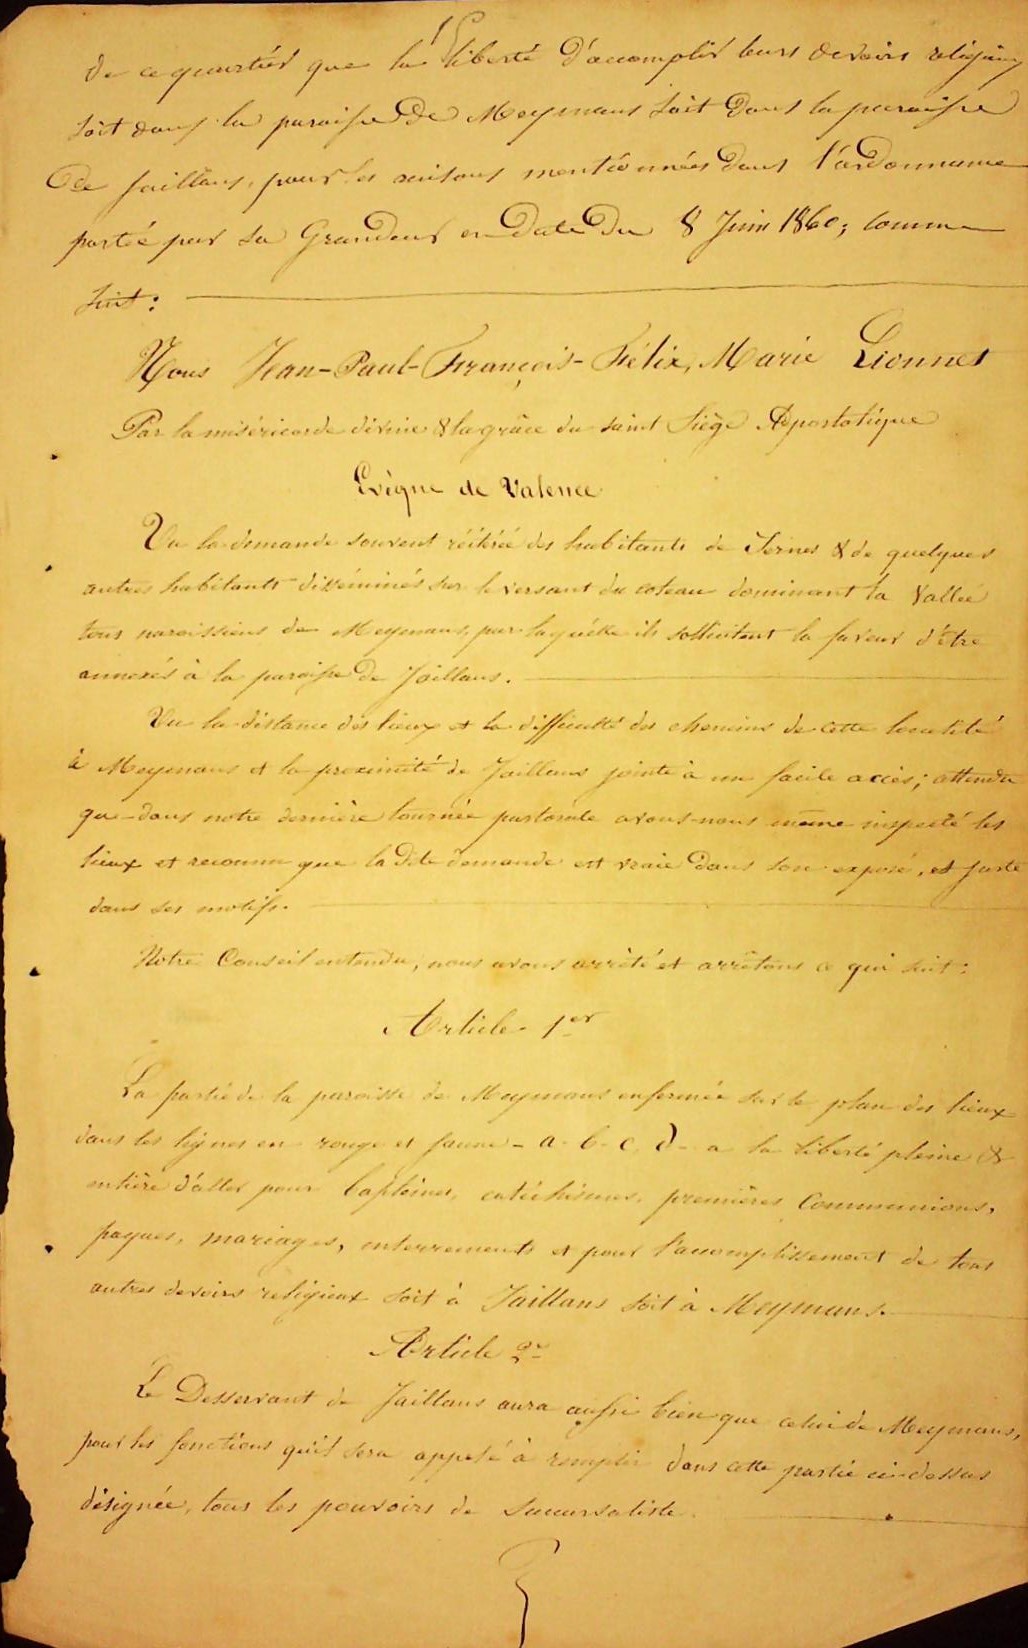 de ce quartier que la liberté d'accomplir leurs devoirs religieux
soit dans la paroisse de Meymans soit dans la paroisse
de Jaillans, pour les raisons mentionnées dans l'ordonnance
portée par sa Grandeur en date du 8 Juin 1860; comme
suit:
Nous Jean-Paul-François-Félix, Marie Lionnet
Par la miséricorde divine & la grâce du Saint Siège Apostolique
Evêque de Valence
Vu la demande souvent réitérée des habitants de Sernes & de quelques
autres habitants disséminés sur le versant du coteau dominant la vallée
tous paroissiens de Meymans, par laquelle ils sollicitent la faveur d'être
annexés à la paroisse de Jaillans.
Vu la distance des lieux et la difficulté des chemins de cette localité
à Meymans et la proximité de Jaillans jointe à un facile accès; attendu
que dans notre dernière tournée pastorale avons-nous même inspecté les
lieux et reconnu que la dite demande est vraie dans son exposé, et juste
dans ses motifs.
Notre Conseil entendu, nous avons arrêté et arrêtons ce qui suit:
Article 1er
La partie de la paroisse de Meymans enfermée sur le plan des lieux
dans les lignes en rouge et jaune - a - b - c, d - a la liberté pleine &
entière d'aller pour baptêmes, catéchismes, premières Communions,
paques, mariages, enterrements et pour l'accomplissement de tous
autres devoirs religieux soit à Jaillans soit à Meymans.
Article 2e
Le Desservant de Jaillans aura aussi bien que celui de Meymans,
pour les fonctions qu'il sera appelé à remplir dans cette partie ci-dessus
désignée, tous les pouvoirs de succursaliste.